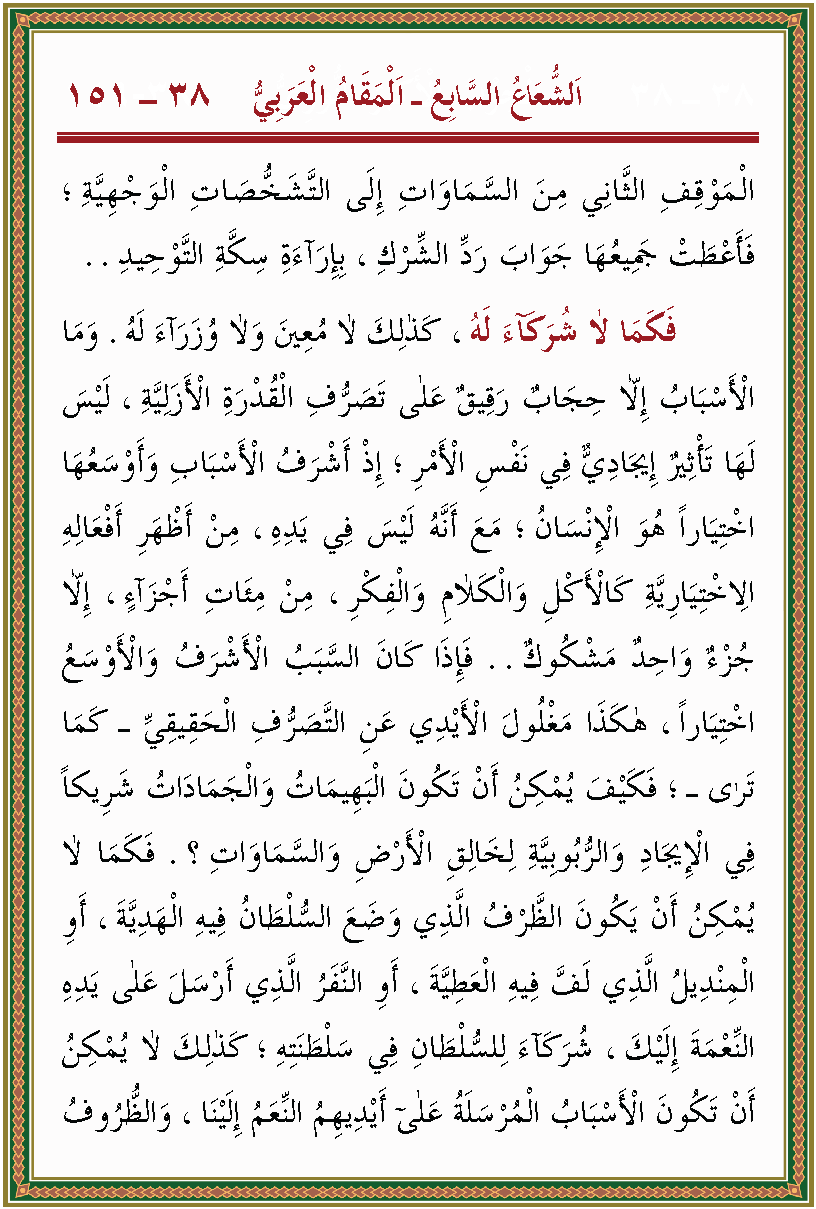 اَلشُّعَاعُ السَّابِعُ ـ اَلْمَقَامُ الْعَرَبِيُّ ٣٨ ـ ١٥١
الْمَوْقِفِ الثَّانِي مِنَ السَّمَاوَاتِ إِلَى التَّشَخُّصَاتِ الْوَجْهِيَّةِ ؛
فَأَعْطَتْ جَمِيعُهَا جَوَابَ رَدِّ الشِّرْكِ ، بِإِرَآءَةِ سِكَّةِ التَّوْحِيدِ . .
فَكَمَا لاَ شُرَكَآءَ لَهُ ، كَذٰلِكَ لاَ مُعِينَ وَلاَ وُزَرَآءَ لَهُ . وَمَا
الْأَسْبَابُ إِلاَّ حِجَابٌ رَقِيقٌ عَلٰى تَصَرُّفِ الْقُدْرَةِ الْأَزَلِيَّةِ ، لَيْسَ
لَهَا تَأْثِيرٌ إِيجَادِيٌّ فِي نَفْسِ الْأَمْرِ ؛ إِذْ أَشْرَفُ الْأَسْبَابِ وَأَوْسَعُهَا
اخْتِيَاراً هُوَ الْإِنْسَانُ ؛ مَعَ أَنَّهُ لَيْسَ فِي يَدِهِ ، مِنْ أَظْهَرِ أَفْعَالِهِ
الِاخْتِيَارِيَّةِ كَالْأَكْلِ وَالْكَلاَمِ وَالْفِكْرِ ، مِنْ مِئَاتِ أَجْزَآءٍ ، إِلاَّ
جُزْءٌ وَاحِدٌ مَشْكُوكٌ . . فَإِذَا كَانَ السَّبَبُ الْأَشْرَفُ وَالْأَوْسَعُ
اخْتِيَاراً ، هٰكَذَا مَغْلُولَ الْأَيْدِي عَنِ التَّصَرُّفِ الْحَقِيقِيِّ ـ كَمَا
تَرٰى ـ ؛ فَكَيْفَ يُمْكِنُ أَنْ تَكُونَ الْبَهِيمَاتُ وَالْجَمَادَاتُ شَرِيكاً
فِي الْإِيجَادِ وَالرُّبُوبِيَّةِ لِخَالِقِ الْأَرْضِ وَالسَّمَاوَاتِ ؟ . فَكَمَا لاَ
يُمْكِنُ أَنْ يَكُونَ الظَّرْفُ الَّذِي وَضَعَ السُّلْطَانُ فِيهِ الْهَدِيَّةَ ، أَوِ
الْمِنْدِيلُ الَّذِي لَفَّ فِيهِ الْعَطِيَّةَ ، أَوِ النَّفَرُ الَّذِي أَرْسَلَ عَلٰى يَدِهِ
النِّعْمَةَ إِلَيْكَ ، شُرَكَآءَ لِلسُّلْطَانِ فِي سَلْطَنَتِهِ ؛ كَذٰلِكَ لاَ يُمْكِنُ
أَنْ تَكُونَ الْأَسْبَابُ الْمُرْسَلَةُ عَلٰٓى أَيْدِيهِمُ النِّعَمُ إِلَيْنَا ، وَالظُّرُوفُ